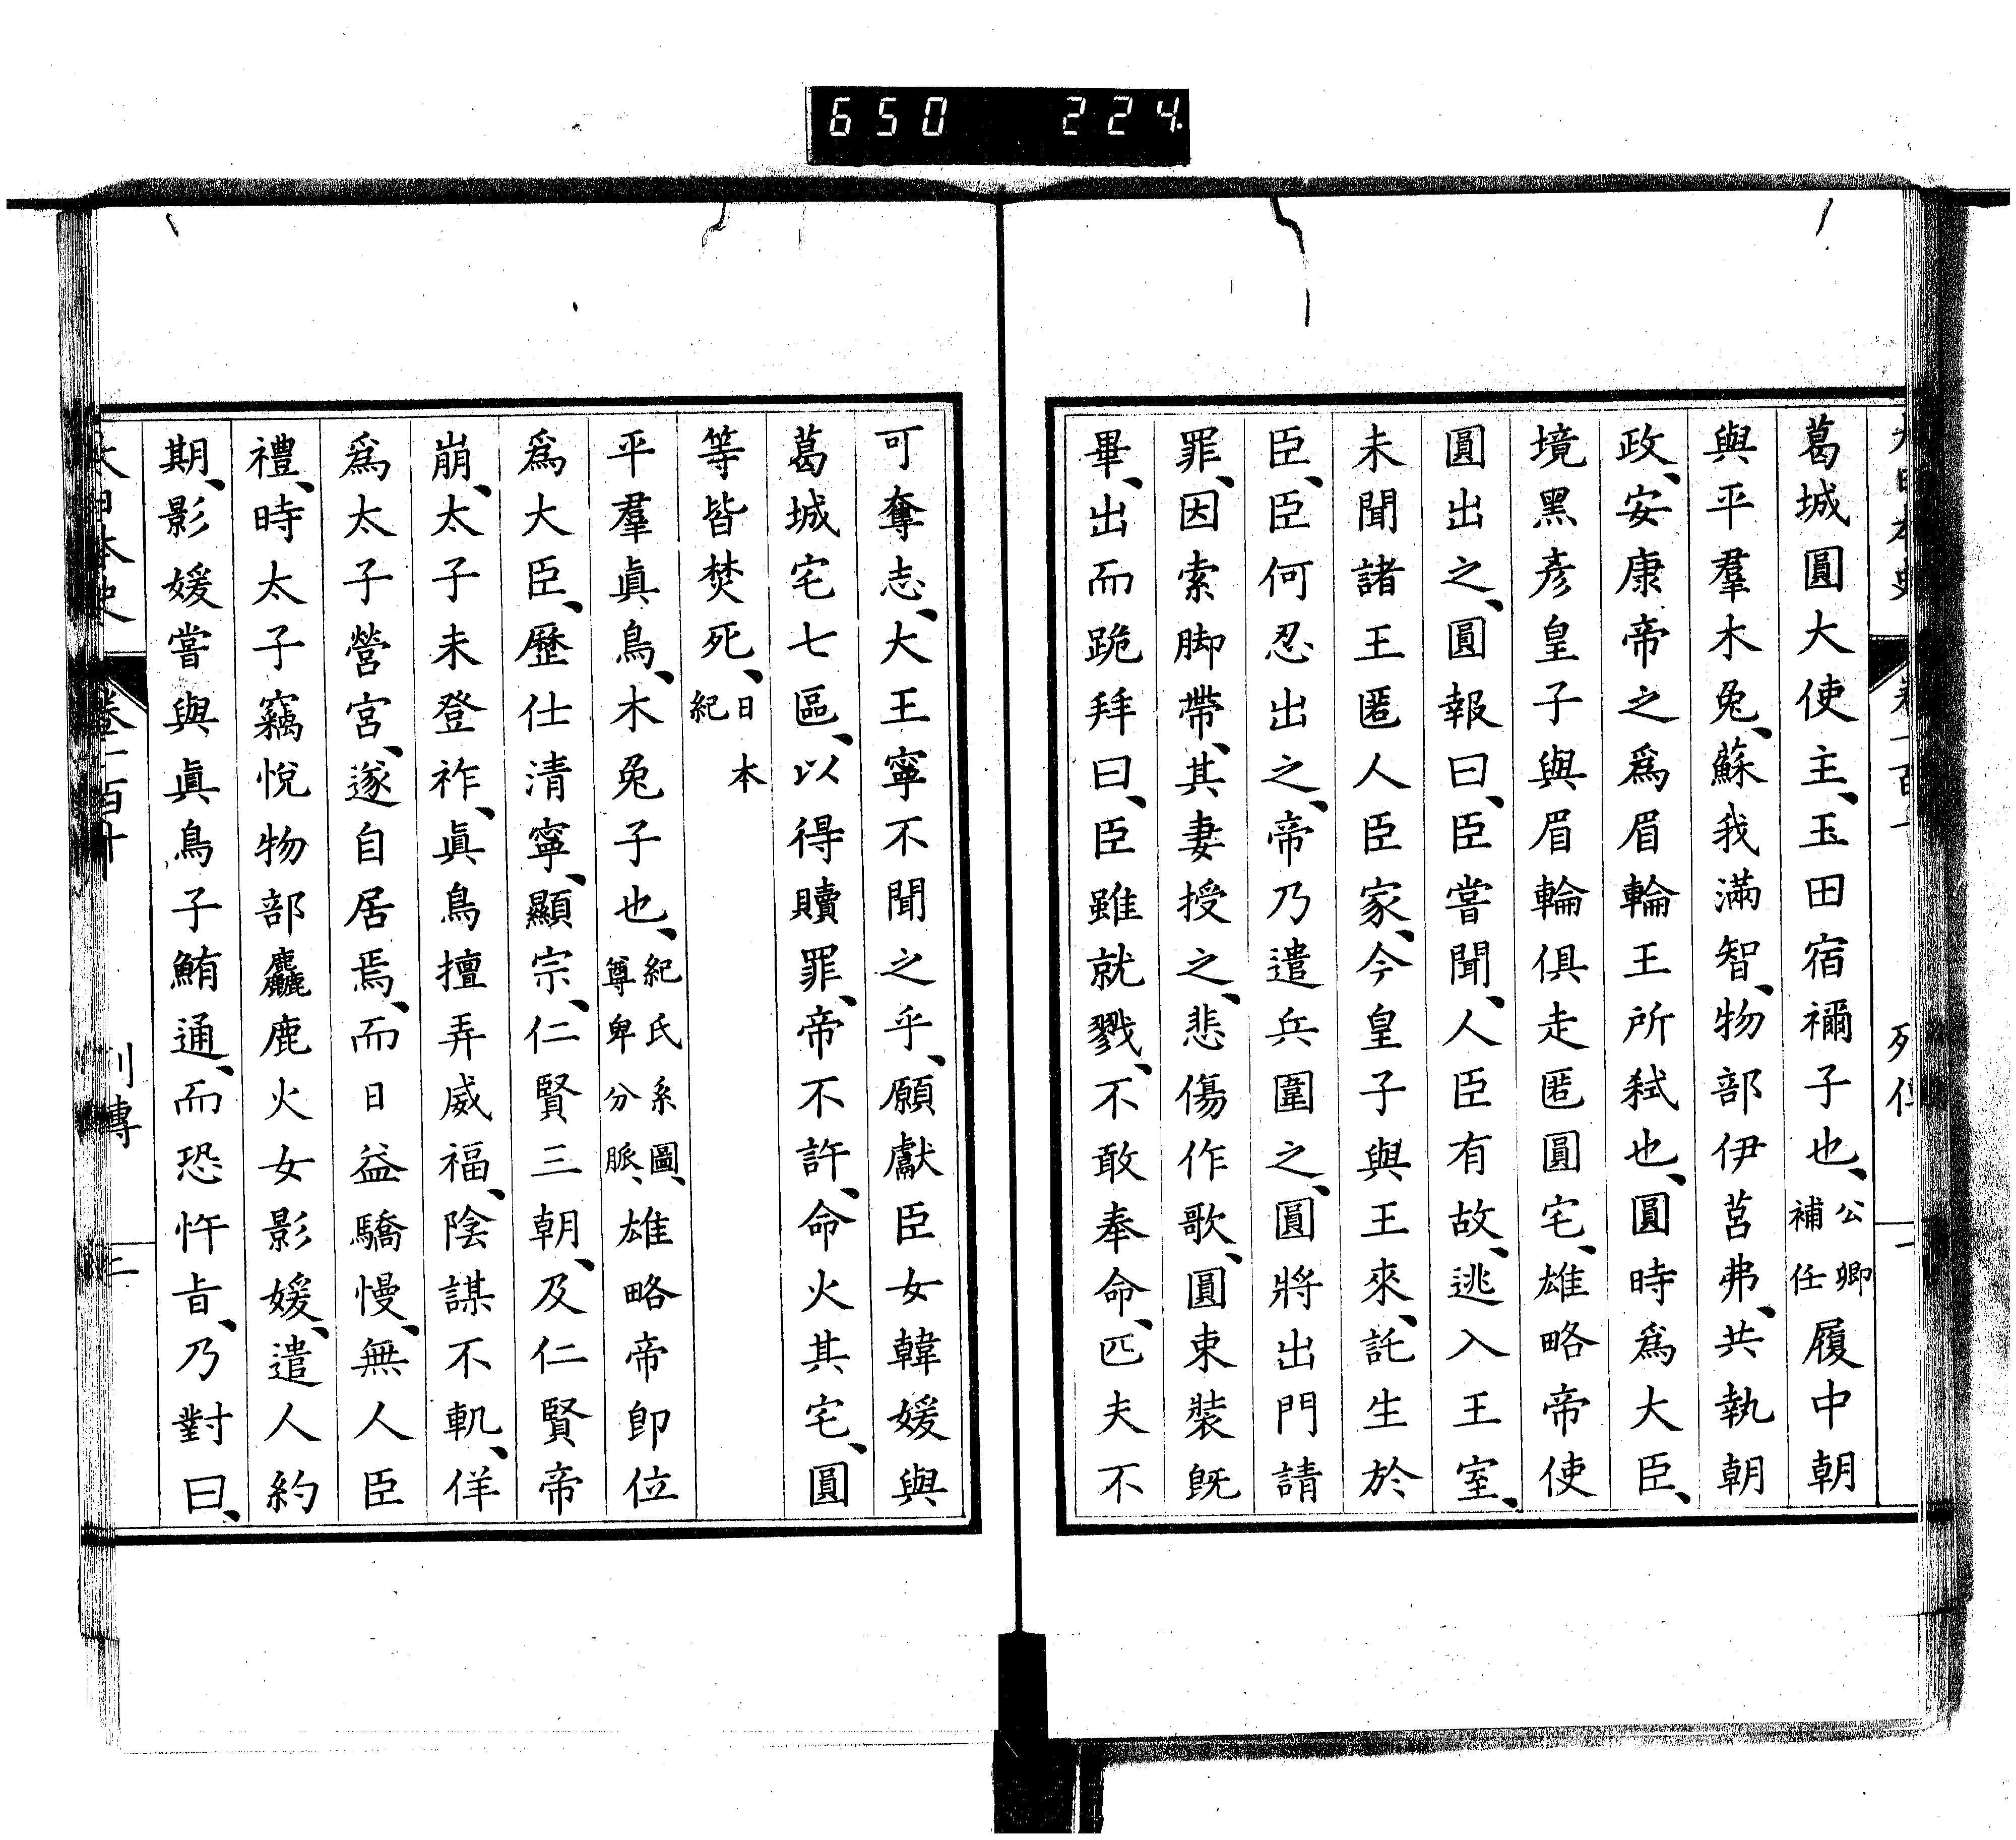 650 224.
葛城圓大使主、玉田宿禰子也、公卿補任履中朝
與平羣木兔、蘇我滿智、物部伊莒弗、共執朝
政、安康帝之爲眉輪王所弒也、圓時爲大臣、
境黑彥皇子與眉輪俱走匿圓宅、雄略帝使
圓出之、圓報曰、臣嘗聞、人臣有故、逃入王室、
未聞諸王匿人臣家、今皇子與王來、託生於
臣、臣何忍出之、帝乃遣兵圍之、圓將出門請
罪、因索脚帶、其妻授之、悲傷作歌、圓束裝既
畢、出而跪拜曰、臣雖就戮、不敢奉命、匹夫不
可奪志、大王寧不聞之乎、願獻臣女韓媛與
葛城宅七區、以得贖罪、帝不許、命火其宅、圓
等皆焚死、日本紀
平羣眞鳥、木兔子也、紀氏系圖、尊卑分脈、雄略帝卽位
爲大臣、歷仕清寧、顯宗、仁賢三朝、及仁賢帝
崩、太子未登祚、眞鳥擅弄威福、陰謀不軌、佯
爲太子營宮、遂自居焉、而日益驕慢、無人臣
禮、時太子竊悅物部麤鹿火女影媛、遣人約
期、影媛嘗與眞鳥子鮪通、而恐忤旨、乃對曰、